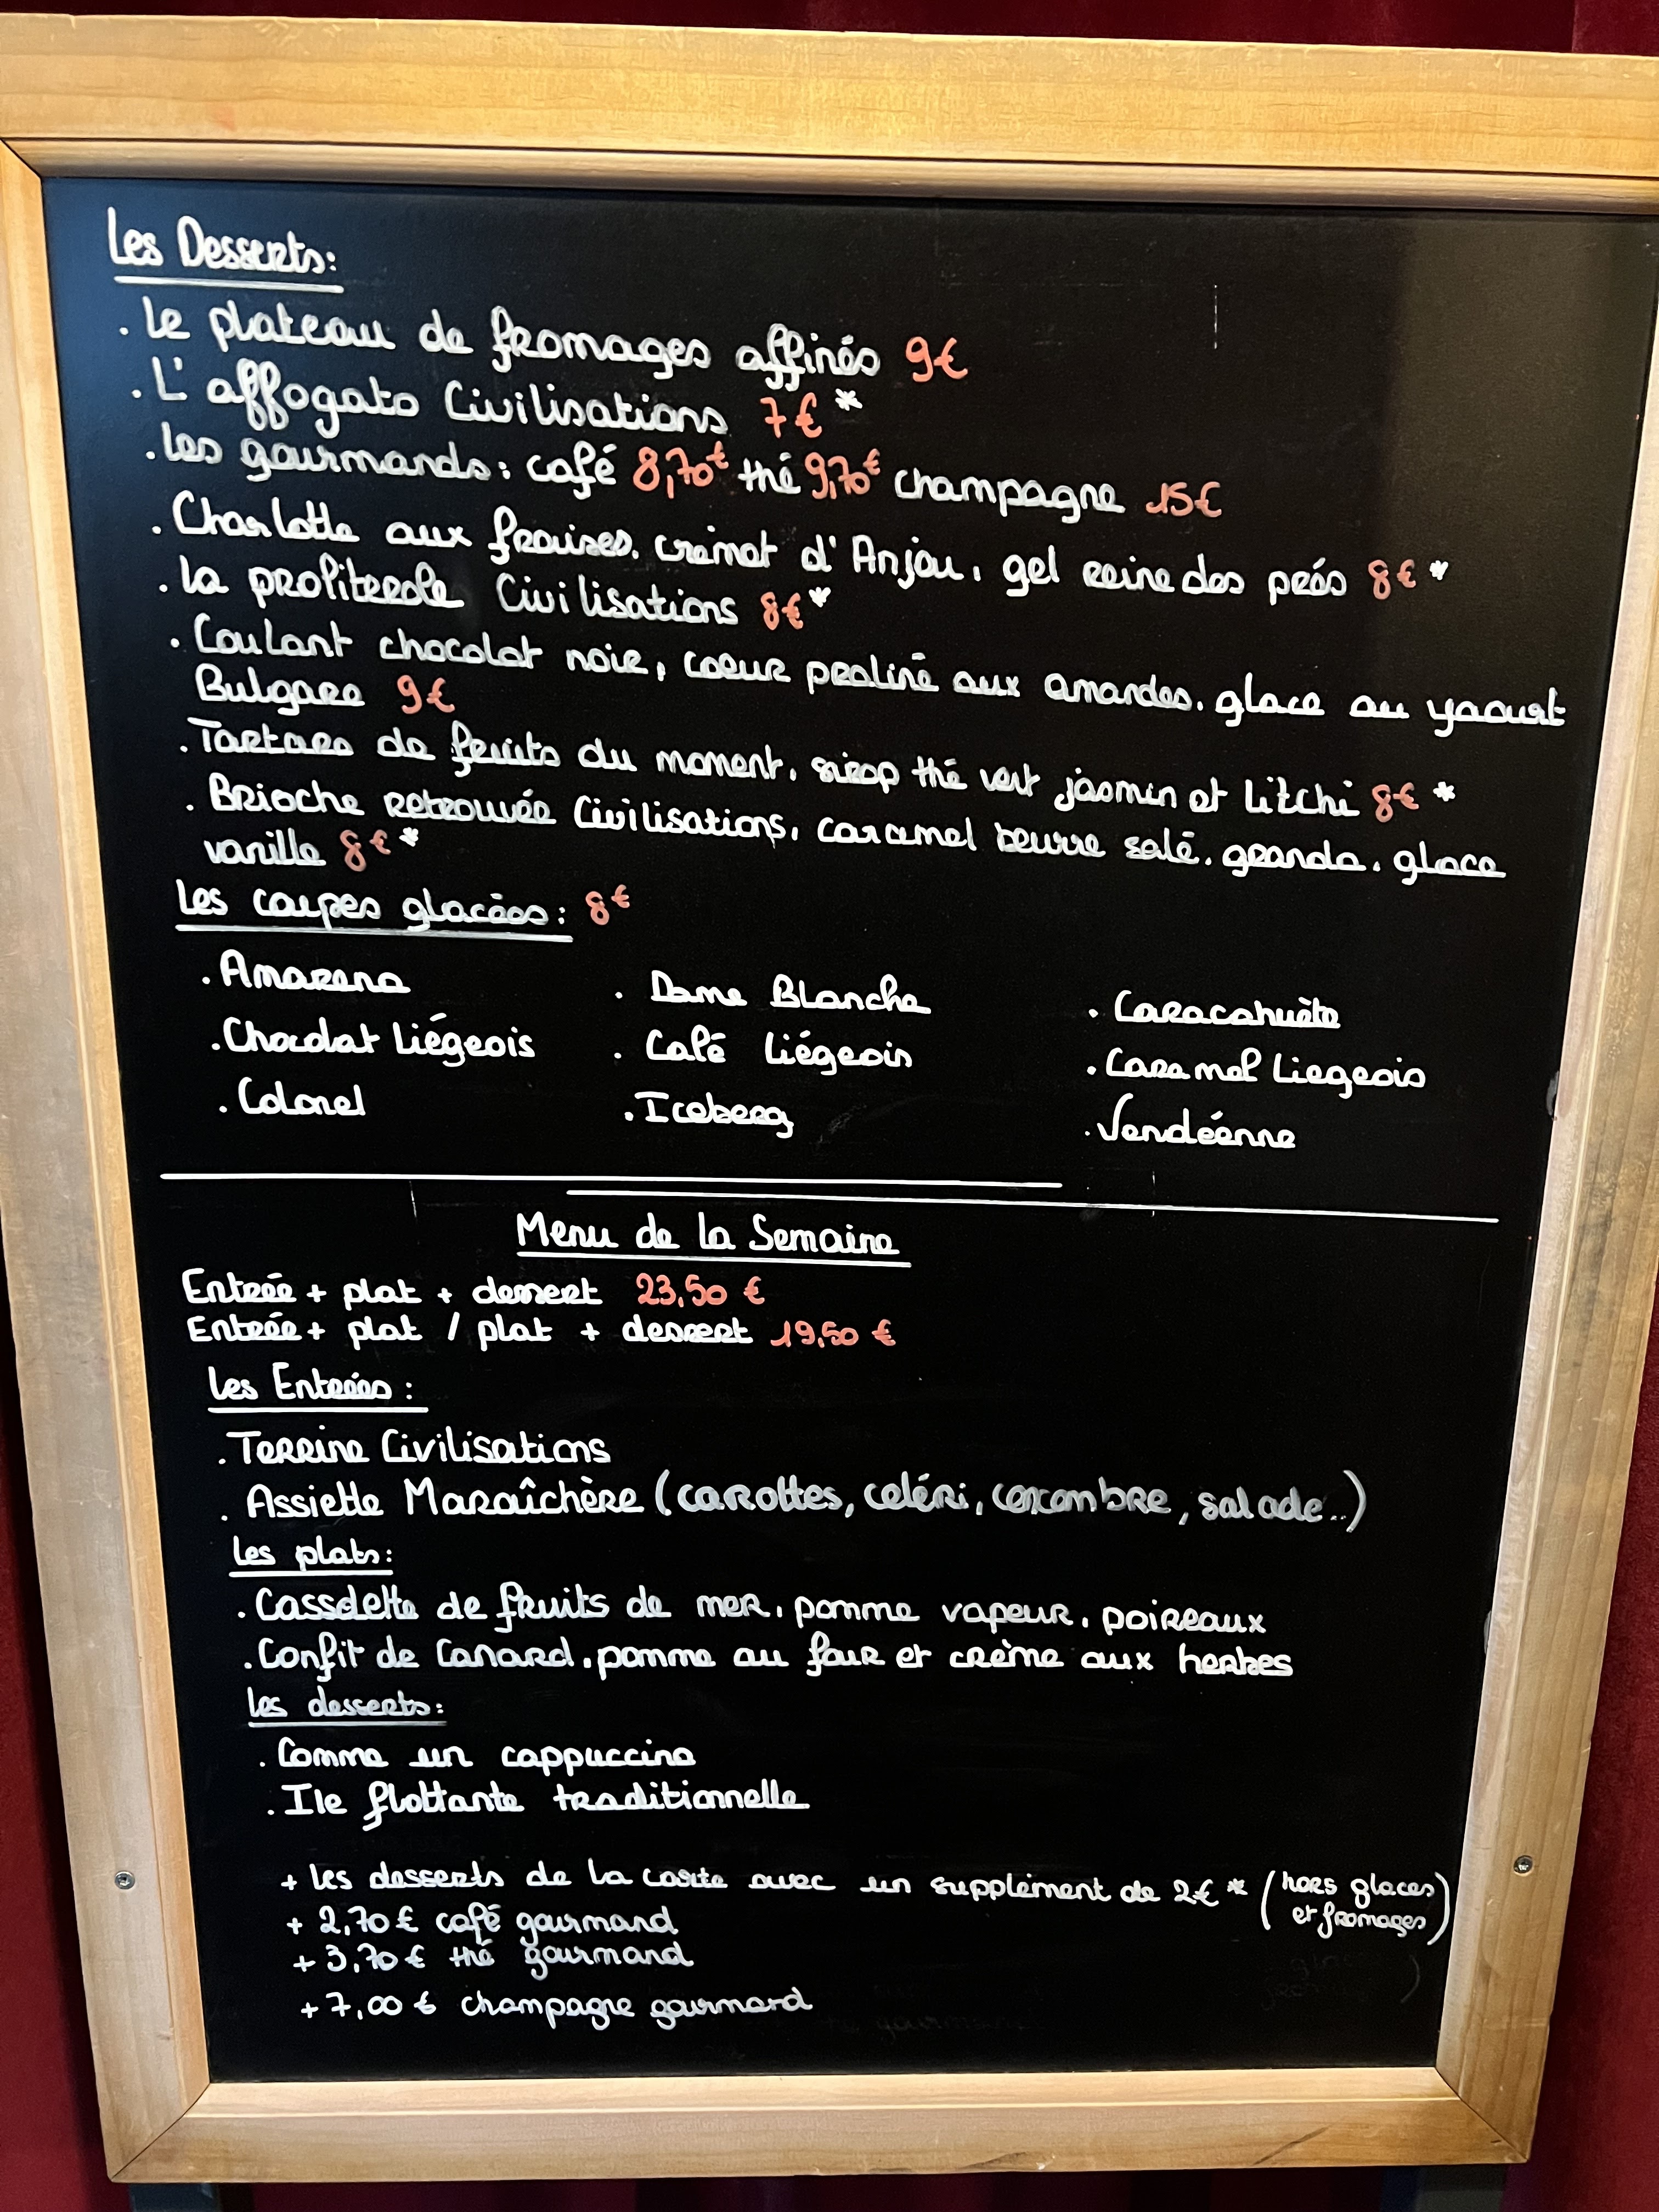 Les Desserts:
. Le plateau de fromages affinés 9€
. L'affogato Civilisations 7€ *
. Les gourmands: café 8,70€ thé 9,70€ champagne 15€
. Charlotte aux fraises, crémet d'Anjou, gel reine des prés 8€ *
. La profiterole Civilisations 8€ *
. Coulant chocolat noir, coeur praliné aux amandes, glace au yaourt
Bulgare 9€
. Tartare de fruits du moment, sirop thé vert jasmin et litchi 8€ *
. Brioche retrouvée Civilisations, caramel beurre salé, granola, glace
vanille 8€ *
Les coupes glacées: 8€
. Amarena . Dame Blanche . Caracahuète
. Chocolat Liégeois . Café Liégeois . Caramel Liegeois
. Colonel . Iceberg . Vendéenne
Menu de la Semaine
Entrée + plat + dessert 23,50 €
Entrée + plat / plat + dessert 19,50 €
Les Entrées:
. Terrine Civilisations
. Assiette Maraîchère (carottes, celéri, concombre, salade..)
Les plats:
. Cassolette de fruits de mer, pomme vapeur, poireaux
. Confit de Canard, pomme au four et crème aux herbes
Les desserts:
. Comme un cappuccino
. Ile flottante traditionnelle
+ Les desserts de la carte avec un supplément de 2€ * (hors glaces
et fromages)
+ 2,70 € café gourmand
+ 3,70 € thé gourmand
+ 7,00 € champagne gourmand